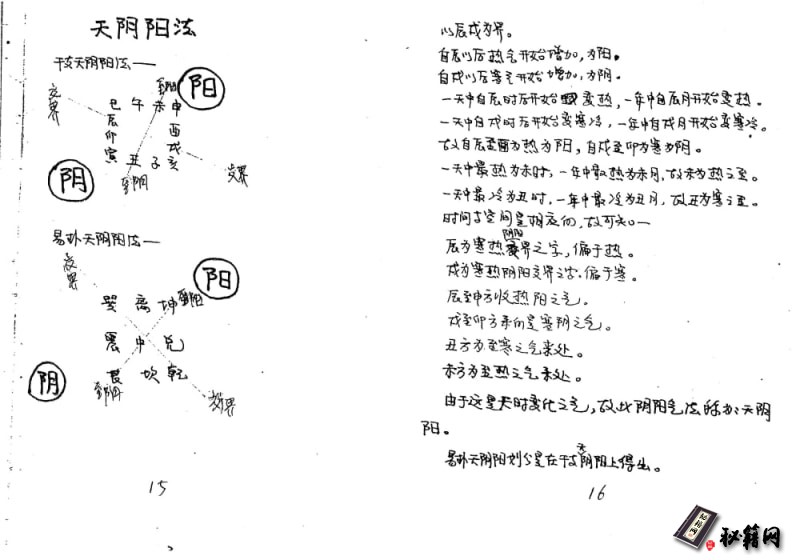 天阴阳法
干支天阴阳法——
阳
至阳
交界
巳 午 未 申
辰
卯
寅
酉
戌
丑 子 亥
阴
至阴
交界
易卦天阴阳法——
交界
阳
巽 离 坤 至阳
震 中 兑
艮 坎 乾
阴
至阴
交界
15
以辰戌为界。
自辰以后热气开始增加,为阳。
自戌以后寒气开始增加,为阴。
一天中自辰时后开始变热,一年中自辰月开始变热。
一天中自戌时后开始变寒冷,一年中自戌月开始变寒冷。
故自辰至酉为热为阳,自戌至卯为寒为阴。
一天中最热为未时,一年中最热为未月,故未为热之至。
一天中最冷为丑时,一年中最冷为丑月,故丑为寒之至。
时间与空间是相应的,故可知:—
辰为寒热阴阳交界之字,偏于热。
戌为寒热阴阳交界之字,偏于寒。
辰至申方收热阳之气。
戌至卯方来的是寒阴之气。
丑方为至寒之气来处。
未方为至热之气来处。
由于这是天时变化之气,故此阴阳气法称为:天阴
阳。
易卦天阴阳划分是在干支天阴阳上得出。
16
秘籍网
秘籍网